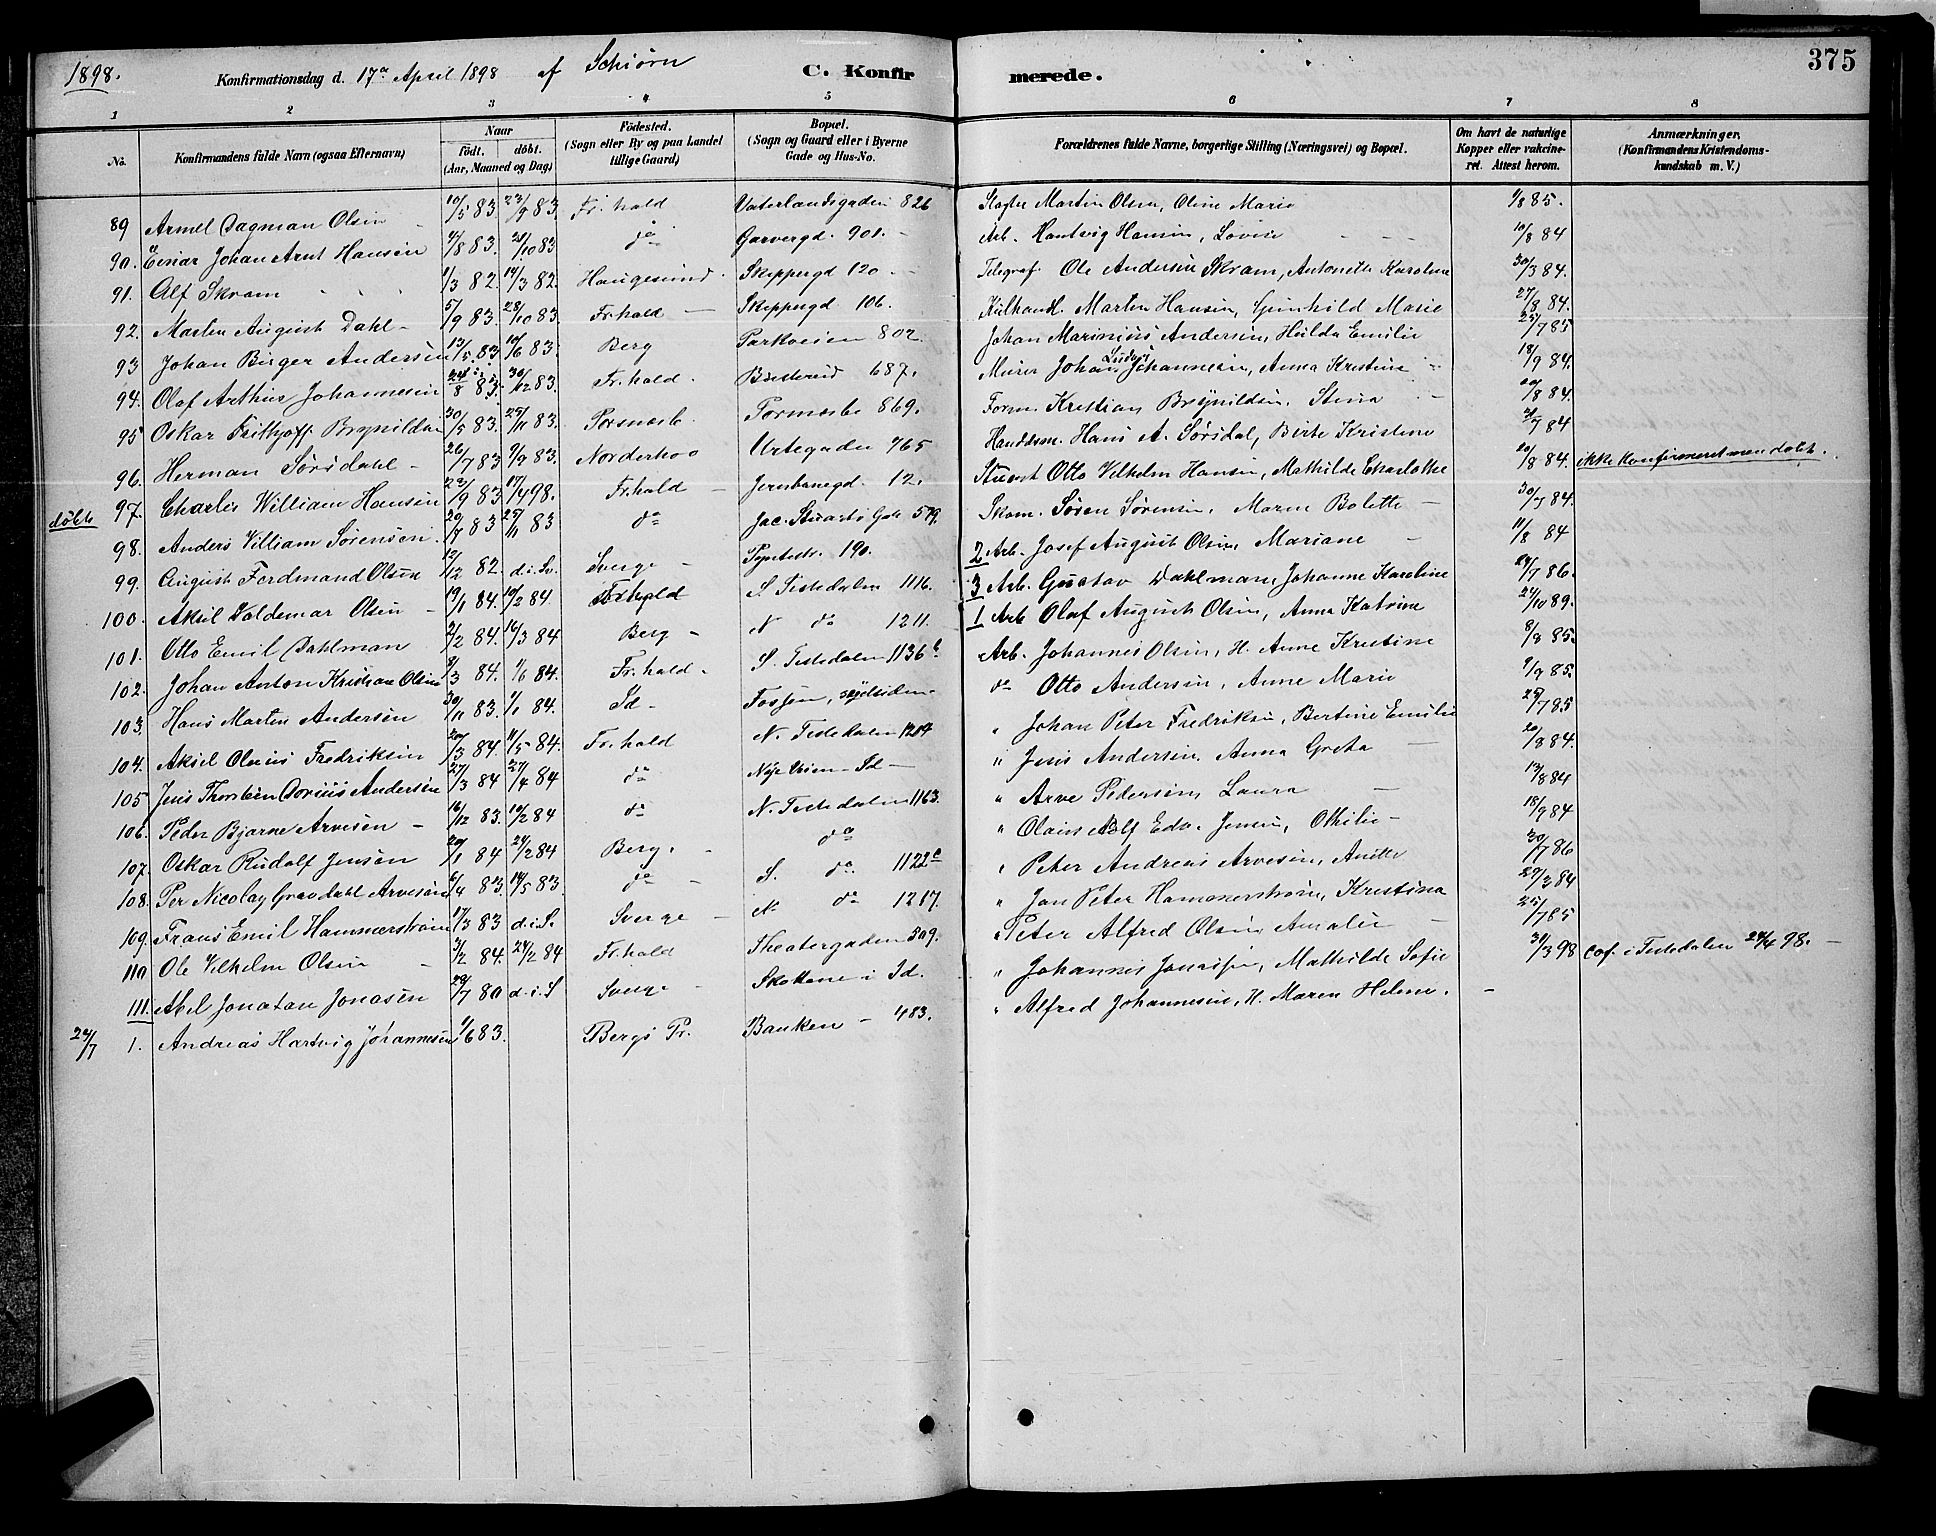 1898. Konfirmationsdag d. 17de April 1898 af Schiørn C. Konfirmerede. 375
1 2 3 4 5 6 7 8
No. Konfirmandens fulde Navn (ogsaa Efternavn) Naar födt. döbt. (Aar, Maaned og Dag) Födested. (Sogn eller By og paa Landet tillige Gaard) Bopæl. (Sogn og Gaard eller i Byerne Gade og Hus-No. Forældrenes fulde Navne, borgerlige Stilling (Næringsvei) og Bopæl. Om havt de naturlige Kopper eller vakcineret. Attest herom. Anmærkninger, (Konfirmandens Kristendomskundskab m. V.)
89 Armel Dagman Olsen 10/5 83. 23/9 83. Fr.hald Vaterlandsgaden 826 Slagter Martin Olsen, Oline Marie 1/8 85.
90. Einar Johan Arnt Hansen 4/8 83. 28/10 83 do Garvergd. 901. Arb. Hantvig Hansen, Lovise 10/8 84
91. Alf Skram 1/3 82. 14/3 82. Haugesund. Skippergd 120 Telegraf. Ole Andersen Skram, Antonette Karoline 30/3 84.
92. Marten August Dahl 5/9 83. 28/10 83 Fr.hald Skippergd 106. Kulhandl. Marten Hansen, Gunhild Marie 27/8 84.
93 Johan Birger Andersen 13/5 83 10/6 83. Berg Parkveien 802. Johan Marinius Andersen, Hulda Emilie 25/7 85
94. Olaf Arthur Johannesen 24/8 83. 30/12 83. Fr.hald. Bustereid 687. Murer Johan Ludvig Johannesen, Anna Kristine 18/9 84.
95 Oskar Frithjoff Brynildsen 30/5 83. 25/11 83. Porsnæsb. Pormæsbr 869. Form. Kristian Brynildsen. Stina 20/8 84.
96. Herman Sørsdahl 26/7 83 9/9 83. Norderhoo Urtegaden 465 Handdsm. Hans A. Sørsdal, Birte Kristine 31/7 84
døbte 97. Charles William Hansen 23/9 83 17/4 98. Fr.hald Jernbanegd. 12. Stuert Otto Vilhelm Hansen, Mathilde Charlotte 20/8 84. ikke konfirmeret men døbt.
98. Anders William Sørensen 20/8 83 25/11 83 do Jac. Stuarts Gde 579. Skom. Søren Sørensen, Maren Bolette 30/7 84.
99. August Ferdinand Olsen 12/12 82. d. i. Sv. Sverge Pyntestr. 190. 2 Arb. Josef August Olsen, Mariane 11/8 84
100. Aksel Valdemar Olsen 19/1 84. 10/2 84. Fr.hald S. Tistedalen 1116. 3 Arb. Gustav Dahlman, Johanne Karoline 24/7 86.
101. Otto Emil Dahlman 2/2 84. 16/3 84 Berg N do 1211. 1 Arb. Olaf August Olsen, Anna Katrine 24/10 89.
102. Johan Anton Kristian Olsen 9/3 84. 1/6 84. Fr.hald. S. Tistedalen 1136 b Arb. Johannes Olsen, H. Anne Kristine 8/8 85.
103. Hans Marten Andersen 30/11 83. 1/1 84. Id Fossen, søjelsiden do Otto Andersen, Anne Marie 9/9 85.
104. Aksel Olaius Fredriksen 20/3 84. 11/5 84. Fr.hald N. Tistedalen 1214 " Johan Peter Fredriksen, Bertine Emilie 25/7 85
105 Jens Thorstein Dorius Andersen 27/3 84 27/4 84 do Nye Veien - Id " Jens Andersen. Anna Greta 20/8 84.
106. Peder Bjarne Arvesen 16/12 83. 10/2 84 do N. Tistedalen 1163. " Arve Pedersen, Laura 13/8 84
107. Oskar Rudolf Jensen 20/1 84 24/2 84 Berg. do " Olaus Adolf Edv. Jensen, Othilie 18/9 84
108. Per Nicolay Gravdahl Arvesen 6/4 83. 14/5 83. do S. do 1122 a " Peter Andreas Arvesen, Anette 30/7 86
109. Frans Emil Hammerstrøm 17/3 83 d. i. S. Sverge N. do 1217. " Jan Peter Hammerstrøm, Kristina 29/3 84
110 Ole Vilhelm Olsen 3/2 84. 24/2 84 Fr.hald Theatergaden 309. " Peter Alfred Olsen, Amalie 25/7 85
111. Abel Jonatan Jonasen 29/7 80 d. i. S Sverge Skottene i Id. " Johannes Jonassen, Mathilde Sofie 31/3 98 cof. i Tistedalen 24/4 98.
24/7 1. Andreas Hartvig Johannesen 9/6 83. Bergs Pr. Banken 483. " Alfred Johannesen, H. Maren Helene.